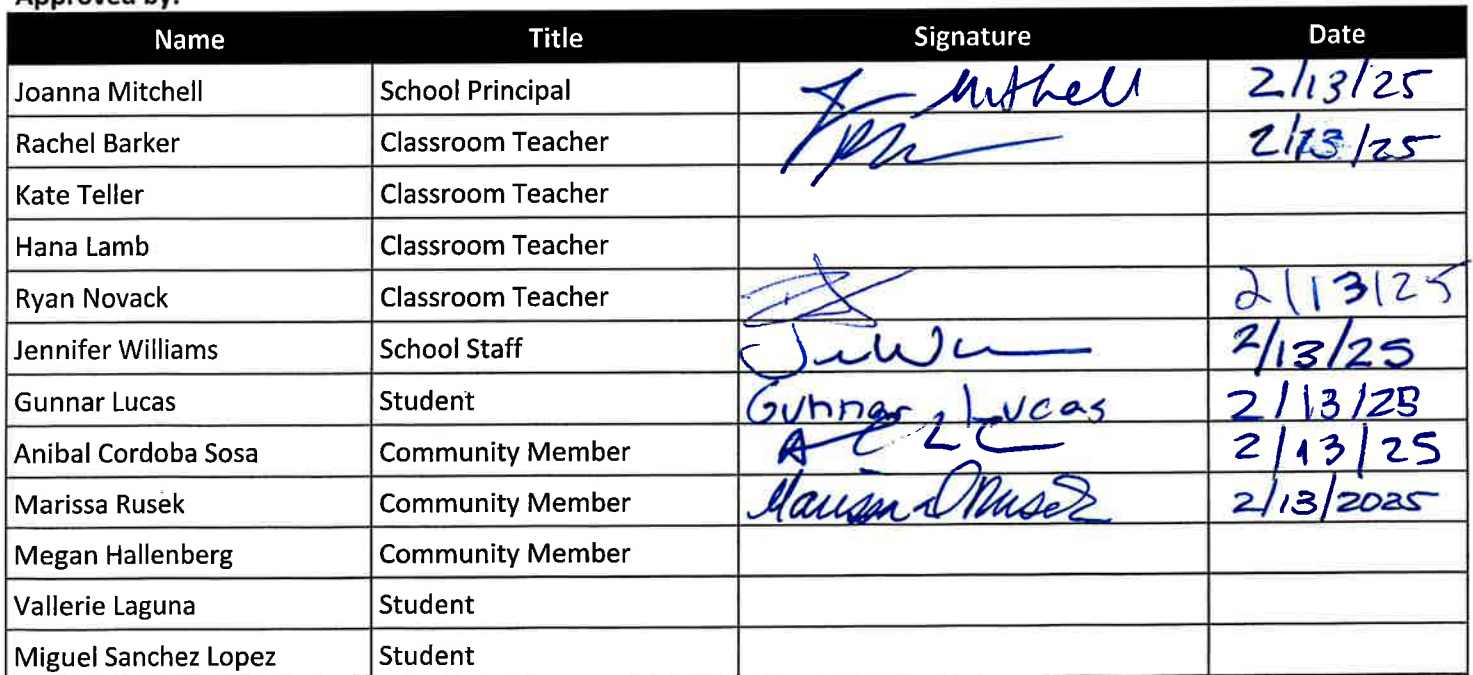 Approved by:
Name Title Signature Date
Joanna Mitchell School Principal Mitchell 2/13/25
Rachel Barker Classroom Teacher 2/13/25
Kate Teller Classroom Teacher
Hana Lamb Classroom Teacher
Ryan Novack Classroom Teacher 2/13/25
Jennifer Williams School Staff 2/13/25
Gunnar Lucas Student Gunnar Lucas 2/13/25
Anibal Cordoba Sosa Community Member 2/13/25
Marissa Rusek Community Member Marissa D Rusek 2/13/2025
Megan Hallenberg Community Member
Vallerie Laguna Student
Miguel Sanchez Lopez Student